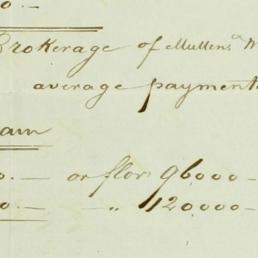 0 . —
Brokerage of Mullens &
average payment
am
0. — or flors 96000 —
0 — - „ 120000 —